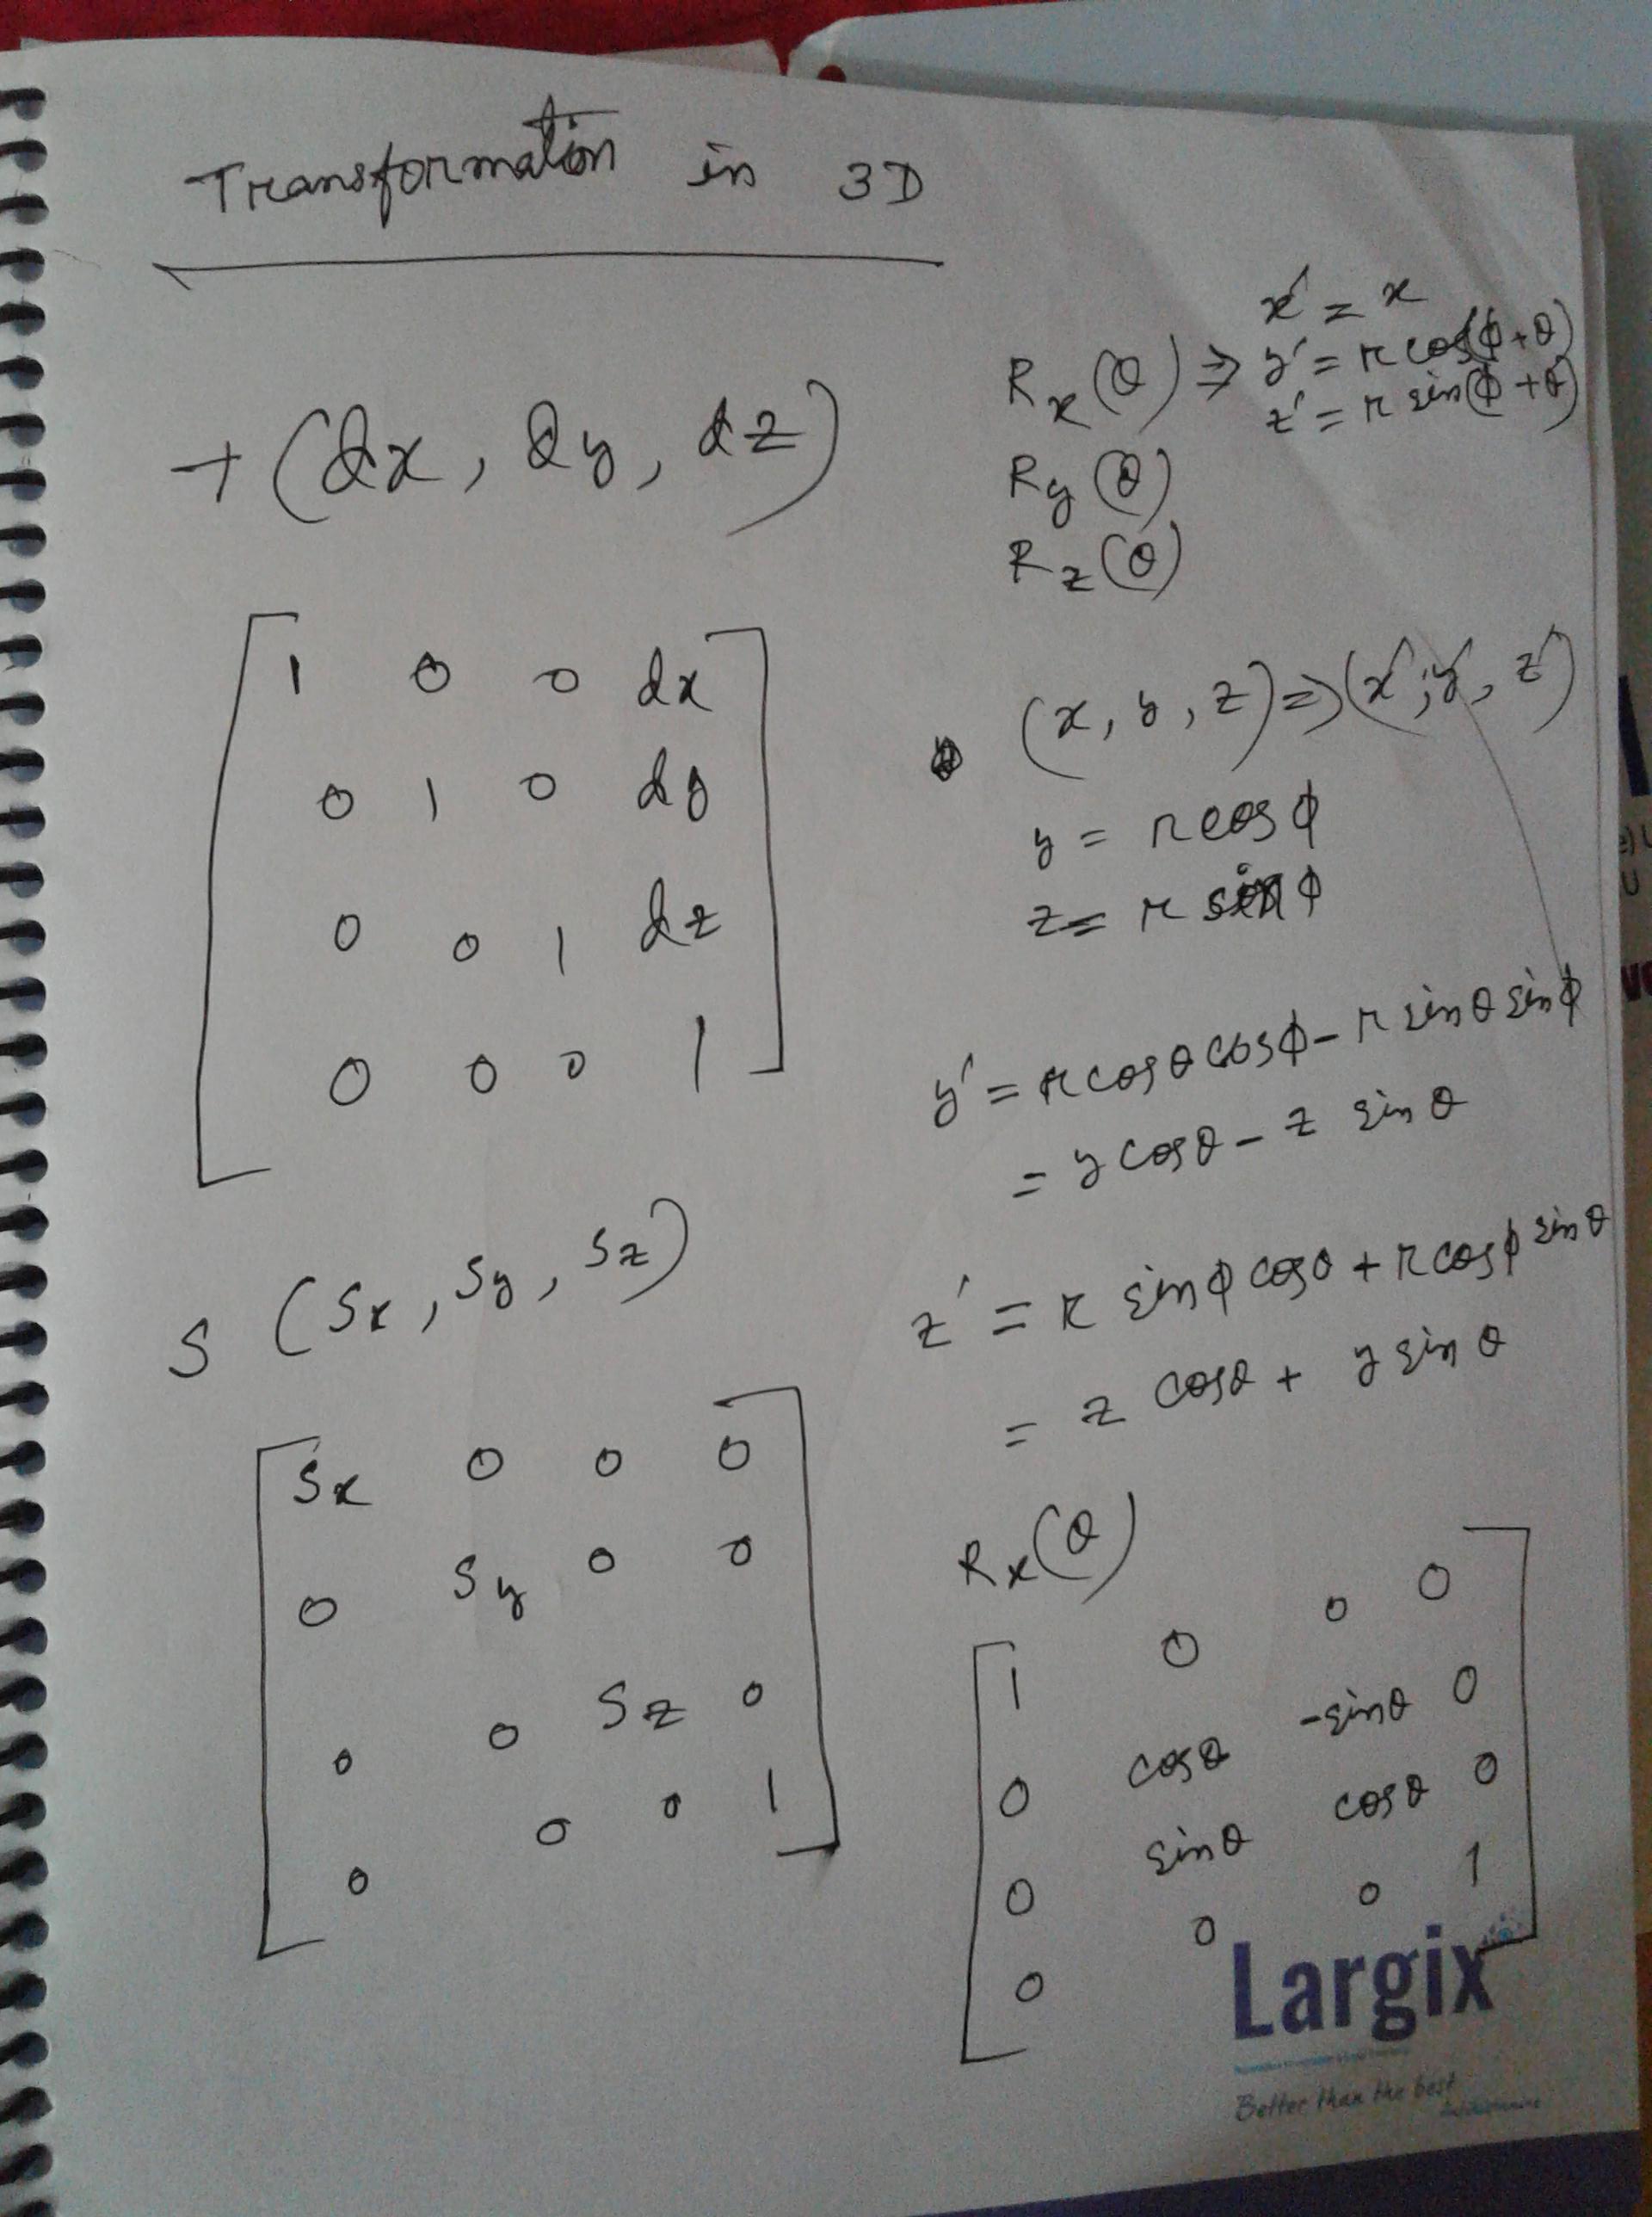 Transformation in 3D
T (dx, dy, dz)
1 0 0 dx
0 1 0 dy
0 0 1 dz
0 0 0 1
S (Sx, Sy, Sz)
Sx 0 0 0
0 Sy 0 0
0 0 Sz 0
0 0 0 1
x' = x
Rx(θ) ⇒ y' = r cos(ϕ+θ)
z' = r sin(ϕ+θ)
Ry(θ)
Rz(θ)
(x, y, z) ⇒ (x', y', z')
y = r cosϕ
z = r sinϕ
y' = r cosθ cosϕ - r sinθ sinϕ
= y cosθ - z sinθ
z' = r sinϕ cosθ + r cosϕ sinθ
= z cosθ + y sinθ
Rx(θ)
1 0 0 0
0 cosθ -sinθ 0
0 sinθ cosθ 0
0 0 0 1
Largix
Better than the best